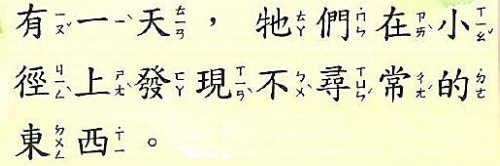 有一天，牠們在小
徑上發現不尋常的
東西。